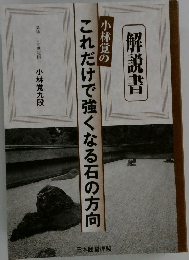 解説書
小林覚の
これだけで強くなる石の方向
小林覚九段